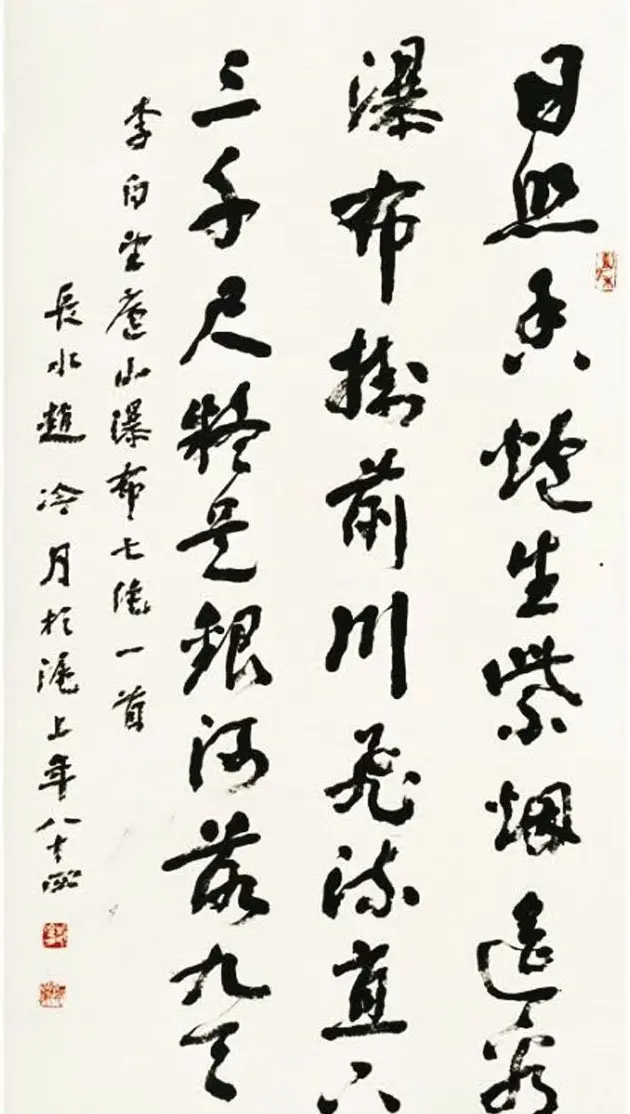 日照香爐生紫烟遥看
瀑布掛前川飛流直下
三千尺疑是銀河落九天
李白望廬山瀑布七絶一首
長水趙冷月於滬上年八十四